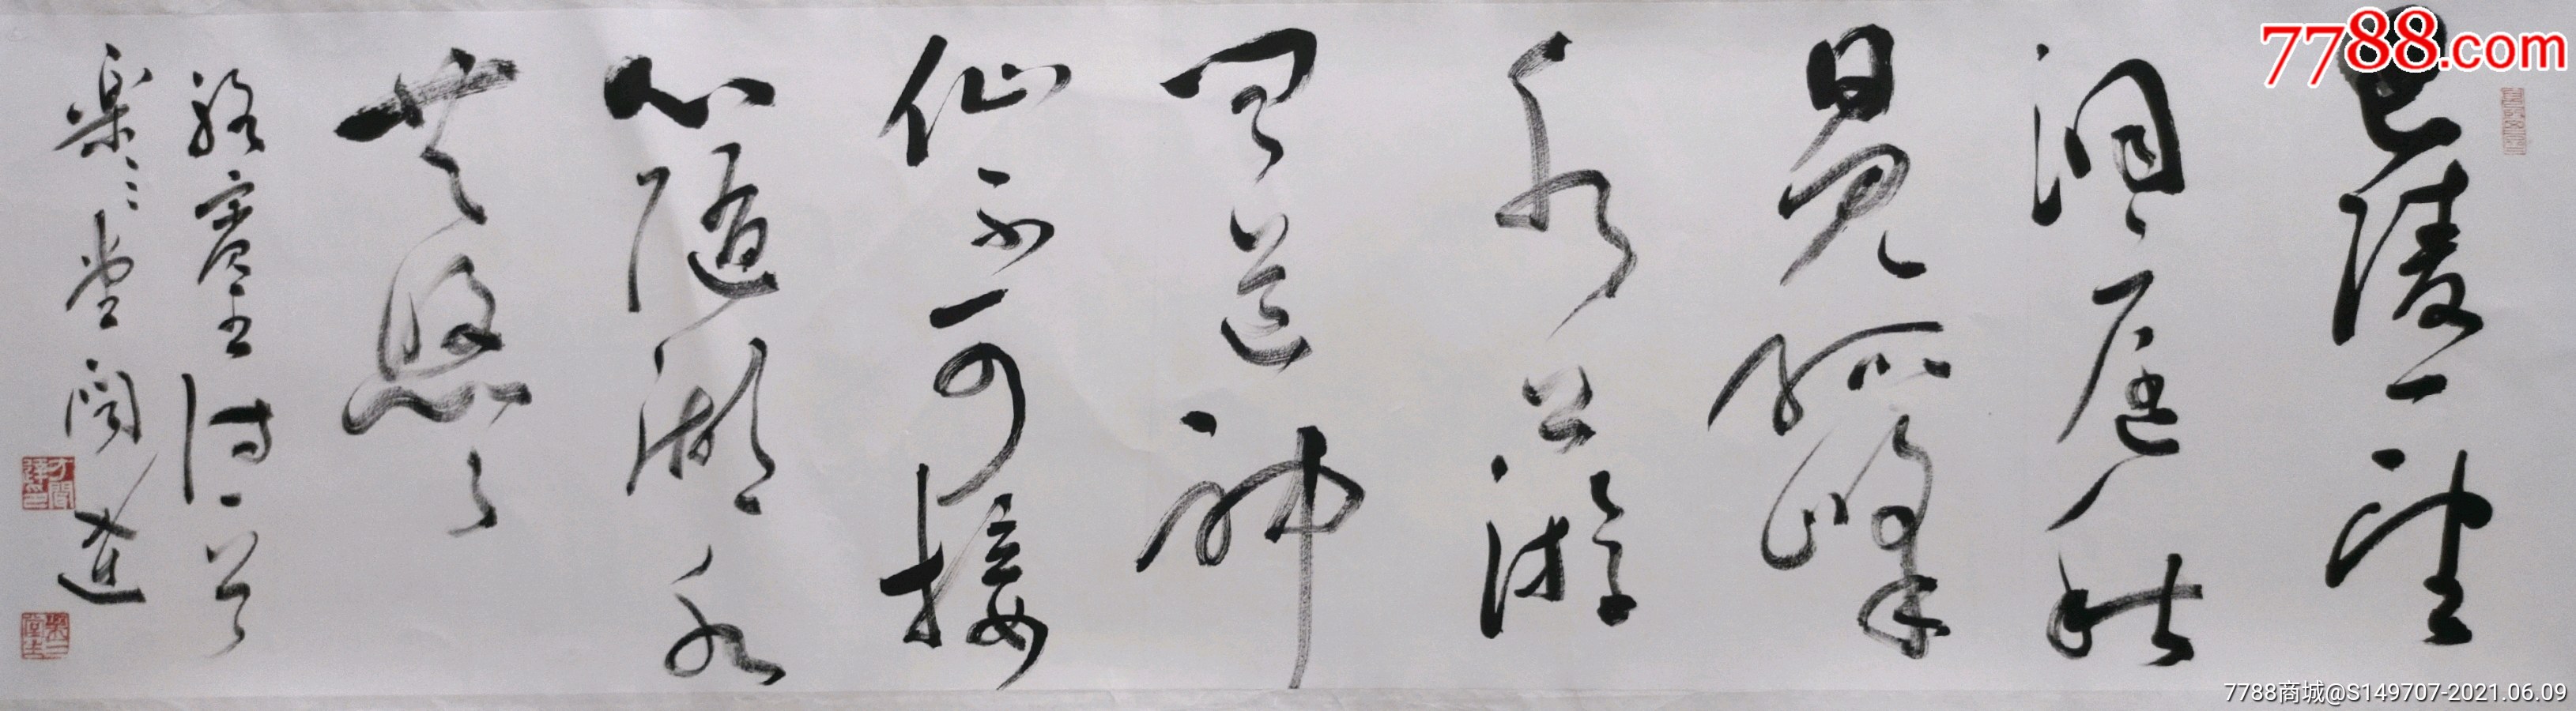 巴陵一望
洞庭秋
日见孤峰
水上浮
闻道神
仙不可接
心随湖水
共悠々
骆宾王诗一首
乐々堂 闻达
7788.com
7788商城@S149707-2021.06.09